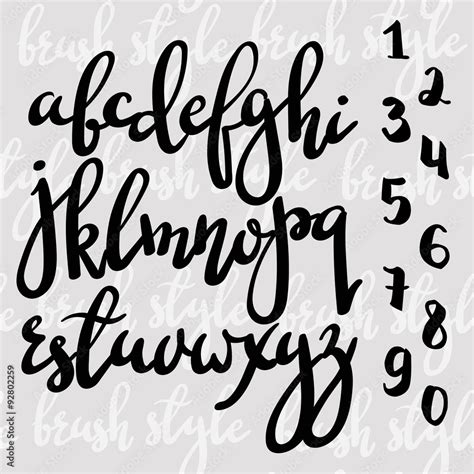 brush style brush style
abcdefghi
jklmnopq
rstuvwxyz
1
2
3
4
5
6
7
8
9
0
brush style
brush style
brush style
brush style
Adobe Stock | #92802259